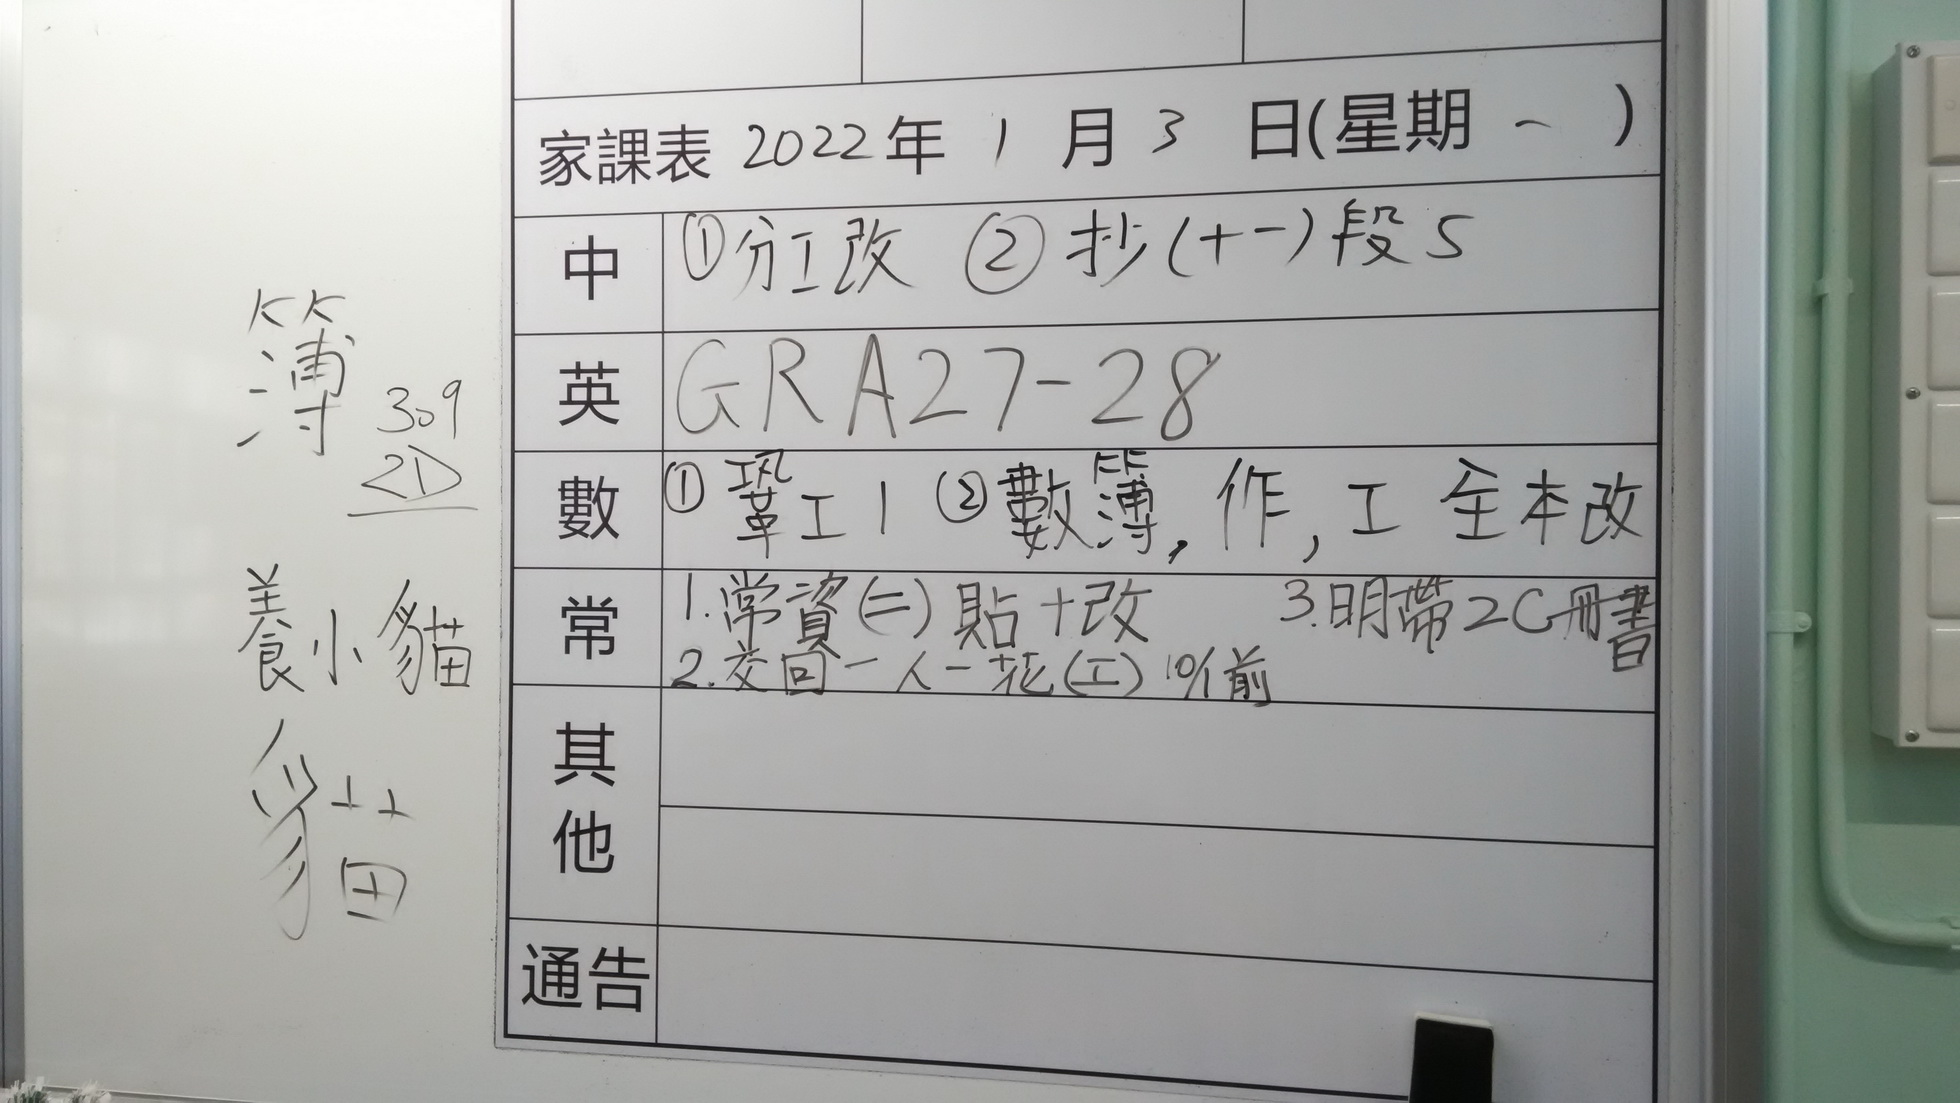 家課表 2022年 1 月 3 日(星期 一 )
中 ①分工改 ②抄(十一)段5
英 GRA27-28
數 ①鞏工1 ②數簿,作,工 全本改
常 1.常資(二)貼+改 3.明帶2C冊書
2.交回一人一花(工) 10/1前
其他
通告
簿
309
2D
養小貓
貓